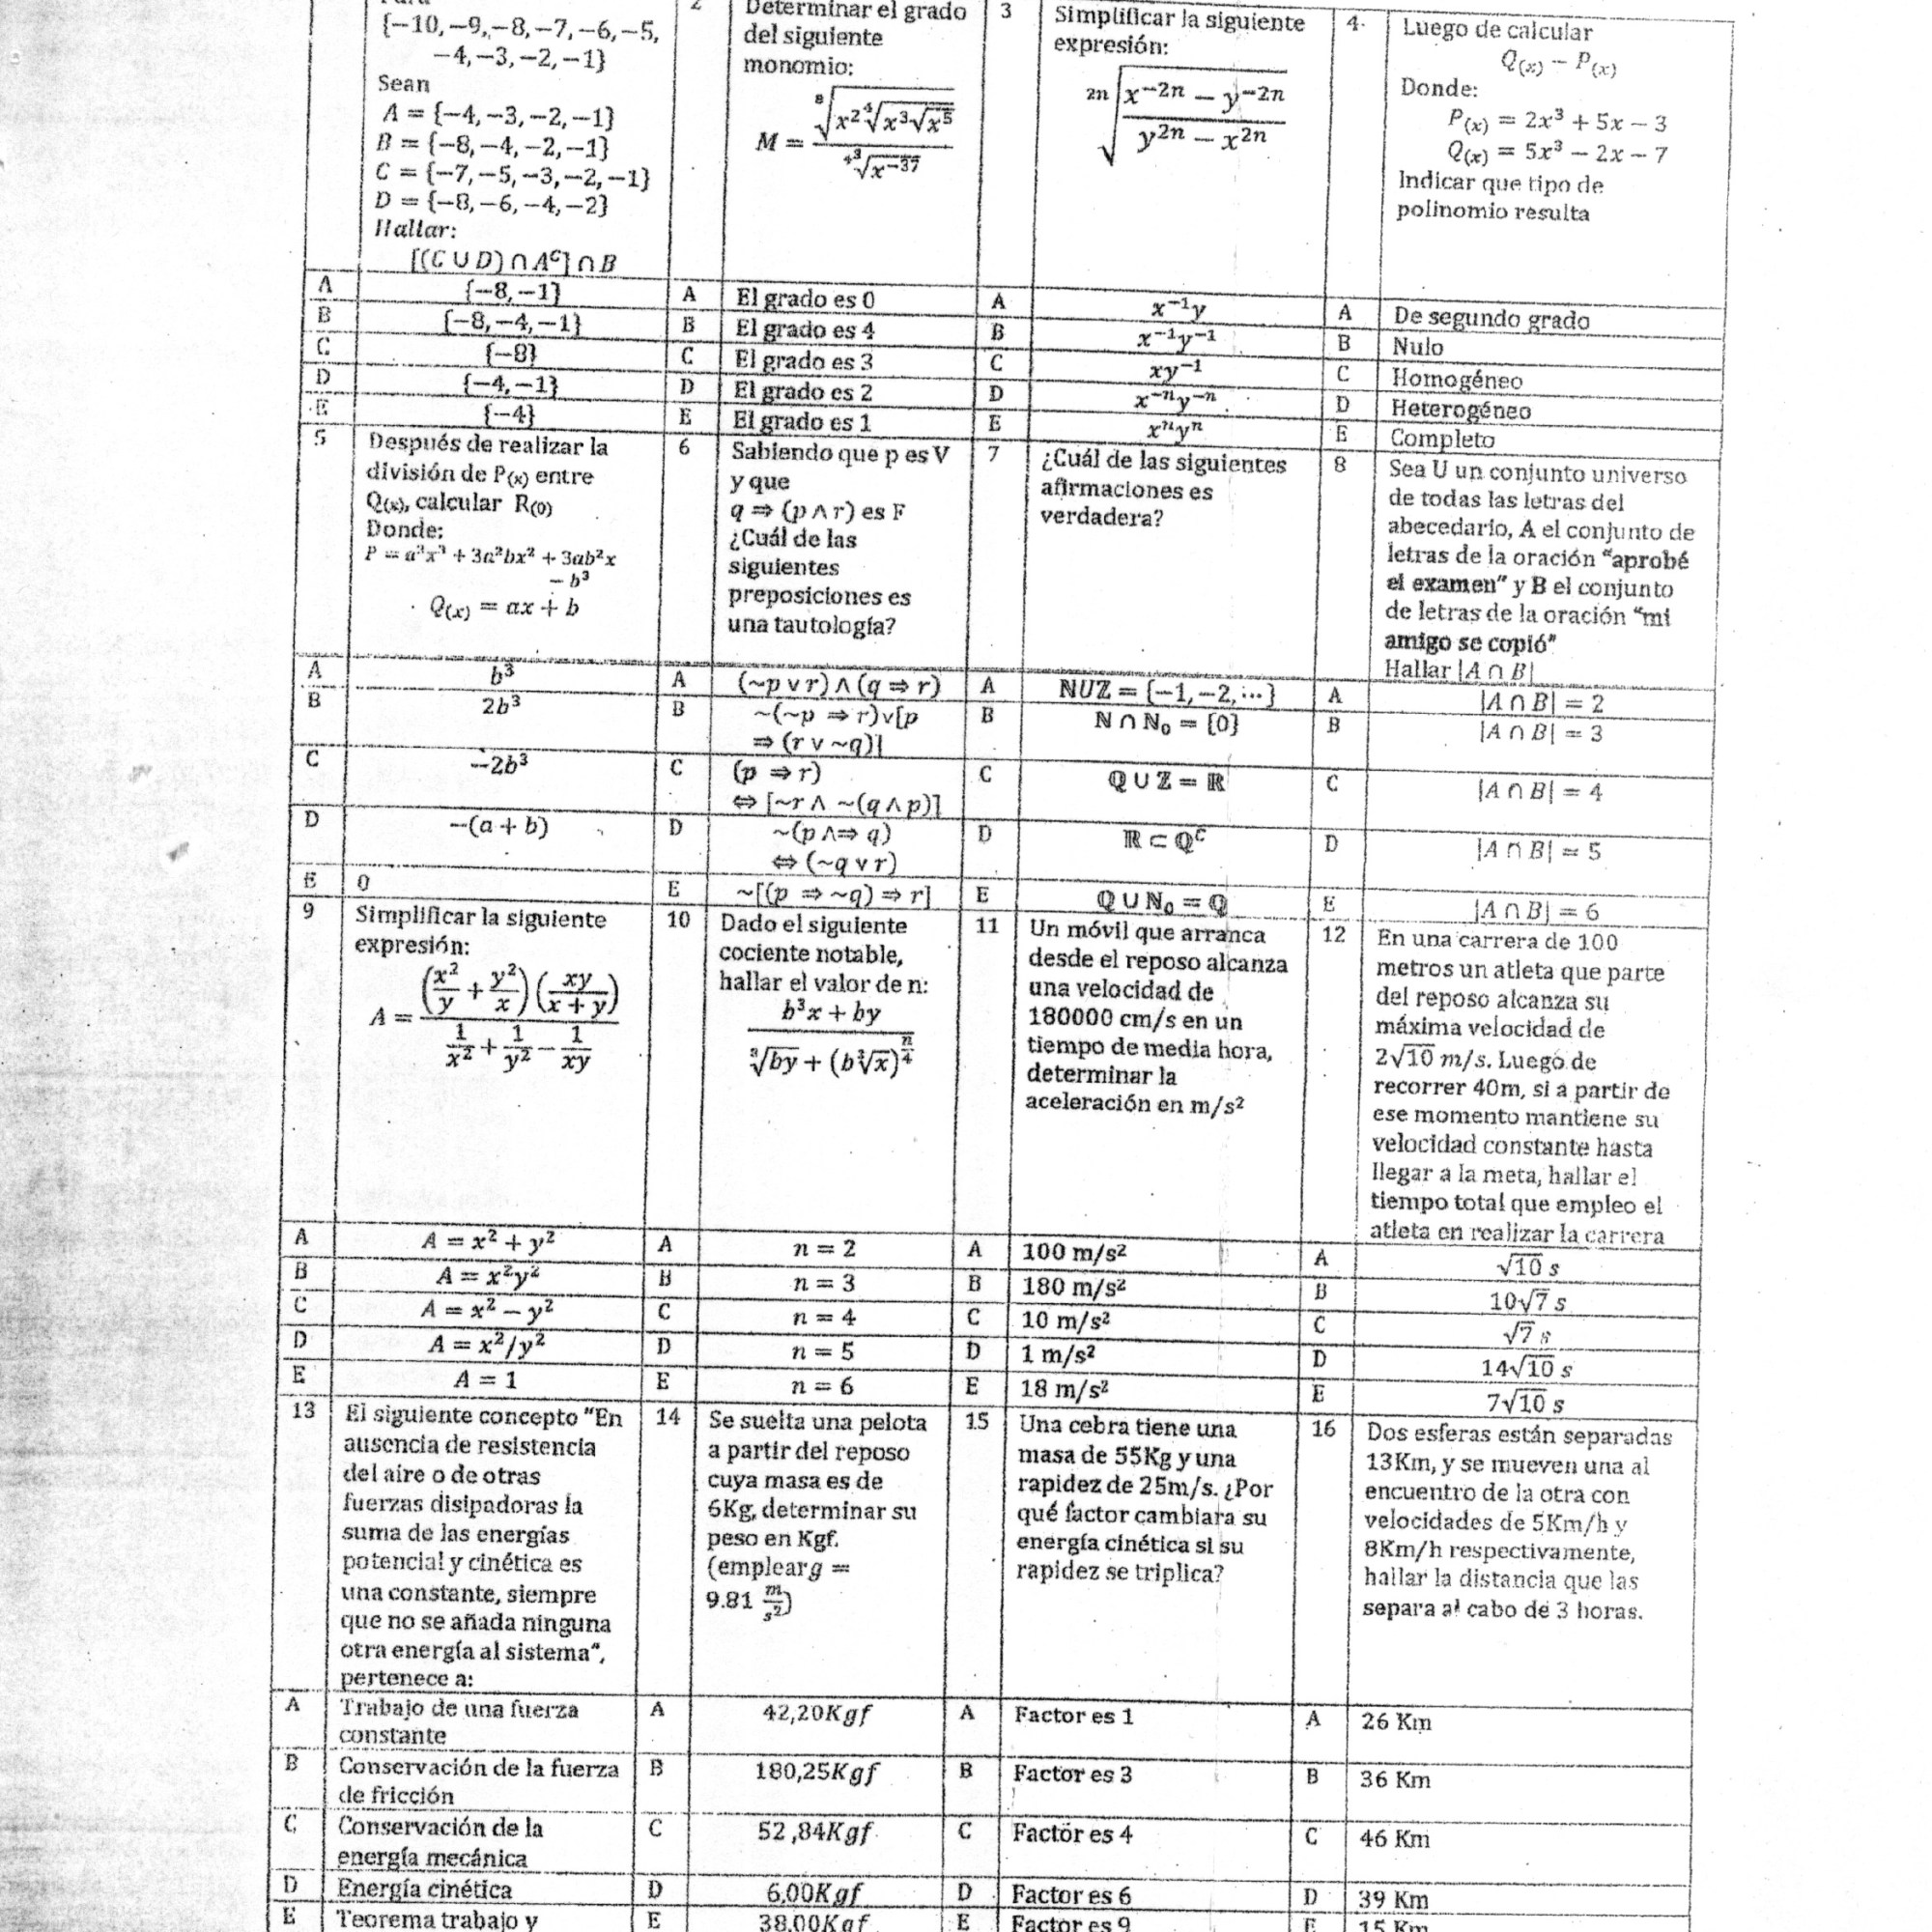 {−10,−9,−8,−7,−6,−5,
−4,−3,−2,−1}
Sean
A = {−4,−3,−2,−1}
B = {−8,−4,−2,−1}
C = {−7,−5,−3,−2,−1}
D = {−8,−6,−4,−2}
Hallar:
[(C ∪ D) ∩ A^C] ∩ B
A {−8,−1}
B {−8,−4,−1}
C {−8}
D {−4,−1}
E {−4}
2 Determinar el grado
del siguiente
monomio:
M = \frac{\sqrt[8]{x^2\sqrt[4]{x^3\sqrt{x^5}}}}{\sqrt[4^3]{x^{-37}}}
A El grado es 0
B El grado es 4
C El grado es 3
D El grado es 2
E El grado es 1
3 Simplificar la siguiente
expresión:
\sqrt[2n]{\frac{x^{-2n} − y^{-2n}}{y^{2n} − x^{2n}}}
A x^{-1}y
B x^{-1}y^{-1}
C xy^{-1}
D x^{-n}y^{-n}
E x^n y^n
4. Luego de calcular
Q(x) − P(x)
Donde:
P(x) = 2x³ + 5x − 3
Q(x) = 5x³ − 2x − 7
Indicar que tipo de
polinomio resulta
A De segundo grado
B Nulo
C Homogéneo
D Heterogéneo
E Completo
5 Después de realizar la
división de P(x) entre
Q(x), calcular R(0)
Donde:
P = a³x³ + 3a²bx² + 3ab²x
− b³
Q(x) = ax + b
A b³
B 2b³
C −2b³
D −(a + b)
E 0
6 Sabiendo que p es V
y que
q ⇒ (p ∧ r) es F
¿Cuál de las
siguientes
preposiciones es
una tautología?
A (~p ∨ r) ∧ (q ⇒ r)
B ~(~p ⇒ r)∨[p
⇒ (r ∨ ~q)]
C (p ⇒ r)
⇔ [~r ∧ ~(q ∧ p)]
D ~(p ∧⇒ q)
⇔ (~q ∨ r)
E ~[(p ⇒ ~q) ⇒ r]
7 ¿Cuál de las siguientes
afirmaciones es
verdadera?
A ℕUℤ = {−1,−2,⋯}
B ℕ ∩ ℕ₀ = {0}
C ℚ ∪ ℤ = ℝ
D ℝ ⊂ ℚ^C
E ℚ ∪ ℕ₀ = ℚ
8 Sea U un conjunto universo
de todas las letras del
abecedario, A el conjunto de
letras de la oración “aprobé
el examen” y B el conjunto
de letras de la oración “mi
amigo se copió”
Hallar |A ∩ B|
A |A ∩ B| = 2
B |A ∩ B| = 3
C |A ∩ B| = 4
D |A ∩ B| = 5
E |A ∩ B| = 6
9 Simplificar la siguiente
expresión:
A = \frac{(\frac{x^2}{y} + \frac{y^2}{x})(\frac{xy}{x + y})}{\frac{1}{x^2} + \frac{1}{y^2} − \frac{1}{xy}}
A A = x² + y²
B A = x²y²
C A = x² − y²
D A = x²/y²
E A = 1
10 Dado el siguiente
cociente notable,
hallar el valor de n:
\frac{b^3x + by}{\sqrt[3]{by} + (b\sqrt[3]{x})^{\frac{n}{4}}}
A n = 2
B n = 3
C n = 4
D n = 5
E n = 6
11 Un móvil que arranca
desde el reposo alcanza
una velocidad de
180000 cm/s en un
tiempo de media hora,
determinar la
aceleración en m/s²
A 100 m/s²
B 180 m/s²
C 10 m/s²
D 1 m/s²
E 18 m/s²
12 En una carrera de 100
metros un atleta que parte
del reposo alcanza su
máxima velocidad de
2√10 m/s. Luego de
recorrer 40m, si a partir de
ese momento mantiene su
velocidad constante hasta
llegar a la meta, hallar el
tiempo total que empleo el
atleta en realizar la carrera
A √10 s
B 10√7 s
C √7 s
D 14√10 s
E 7√10 s
13 El siguiente concepto “En
ausencia de resistencia
del aire o de otras
fuerzas disipadoras la
suma de las energías
potencial y cinética es
una constante, siempre
que no se añada ninguna
otra energía al sistema”,
pertenece a:
A Trabajo de una fuerza
constante
B Conservación de la fuerza
de fricción
C Conservación de la
energía mecánica
D Energía cinética
E Teorema trabajo y
14 Se suelta una pelota
a partir del reposo
cuya masa es de
6Kg, determinar su
peso en Kgf.
(emplear g =
9.81 \frac{m}{s^2})
A 42,20Kgf
B 180,25Kgf
C 52,84Kgf
D 6,00Kgf
E 38,00Kgf
15 Una cebra tiene una
masa de 55Kg y una
rapidez de 25m/s. ¿Por
qué factor cambiara su
energía cinética si su
rapidez se triplica?
A Factor es 1
B Factor es 3
C Factor es 4
D Factor es 6
E Factor es 9
16 Dos esferas están separadas
13Km, y se mueven una al
encuentro de la otra con
velocidades de 5Km/h y
8Km/h respectivamente,
hallar la distancia que las
separa al cabo de 3 horas.
A 26 Km
B 36 Km
C 46 Km
D 39 Km
E 15 Km